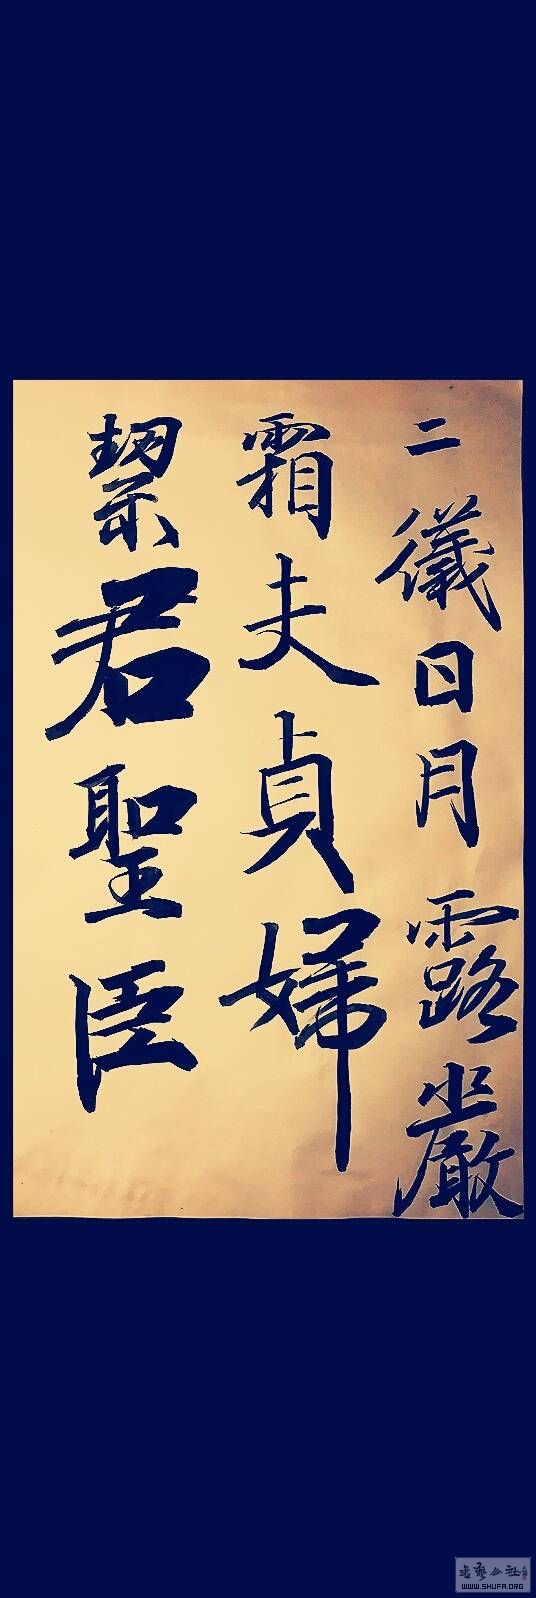 二儀日月露嚴
霜夫貞婦
絜君聖臣
WWW.SHUFA.ORG